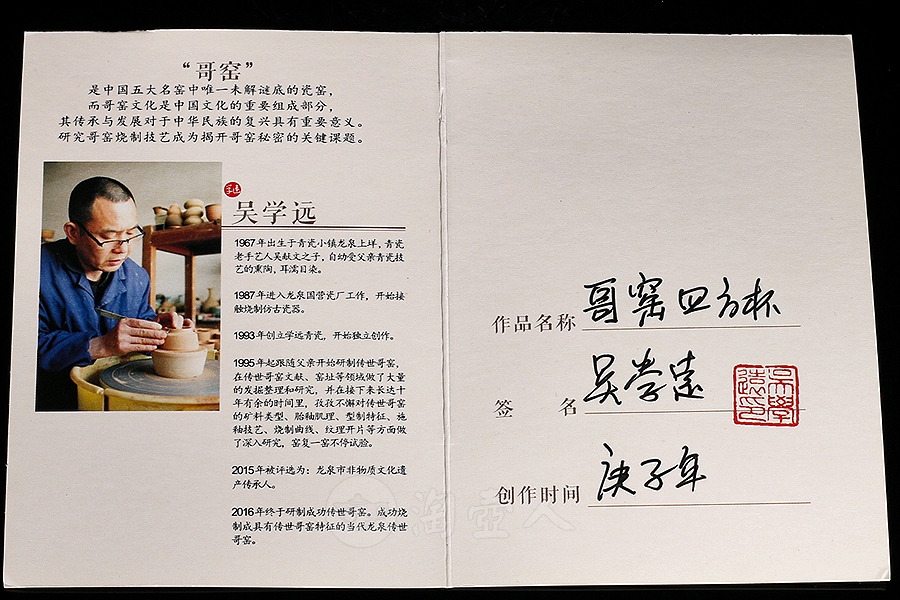 “哥窑”
是中国五大名窑中唯一未解谜底的瓷窑，
而哥窑文化是中国文化的重要组成部分，
其传承与发展对于中华民族的复兴具有重要意义。
研究哥窑烧制技艺成为揭开哥窑秘密的关键课题。
吴学远
1967年出生于青瓷小镇龙泉上垟，青瓷
老手艺人吴献文之子，自幼受父亲青瓷技
艺的熏陶，耳濡目染。
1987年进入龙泉国营瓷厂工作，开始接
触烧制仿古瓷器。
1993年创立学远青瓷，开始独立创作。
1995年起跟随父亲开始研制传世哥窑，
在传世哥窑文献、窑址等领域做了大量
的发掘整理和研究，并在接下来长达十
年有余的时间里，孜孜不懈对传世哥窑
的矿料类型、胎釉肌理、型制特征、施
釉技艺、烧制曲线、纹理开片等方面做
了深入研究，窑复一窑不停试验。
2015年被评选为：龙泉市非物质文化遗
产传承人。
2016年终于研制成功传世哥窑。成功烧
制成具有传世哥窑特征的当代龙泉传世
哥窑。
作品名称 哥窑四方杯
签 名 吴学远
吴學遠印
创作时间 庚子年
淘壶人